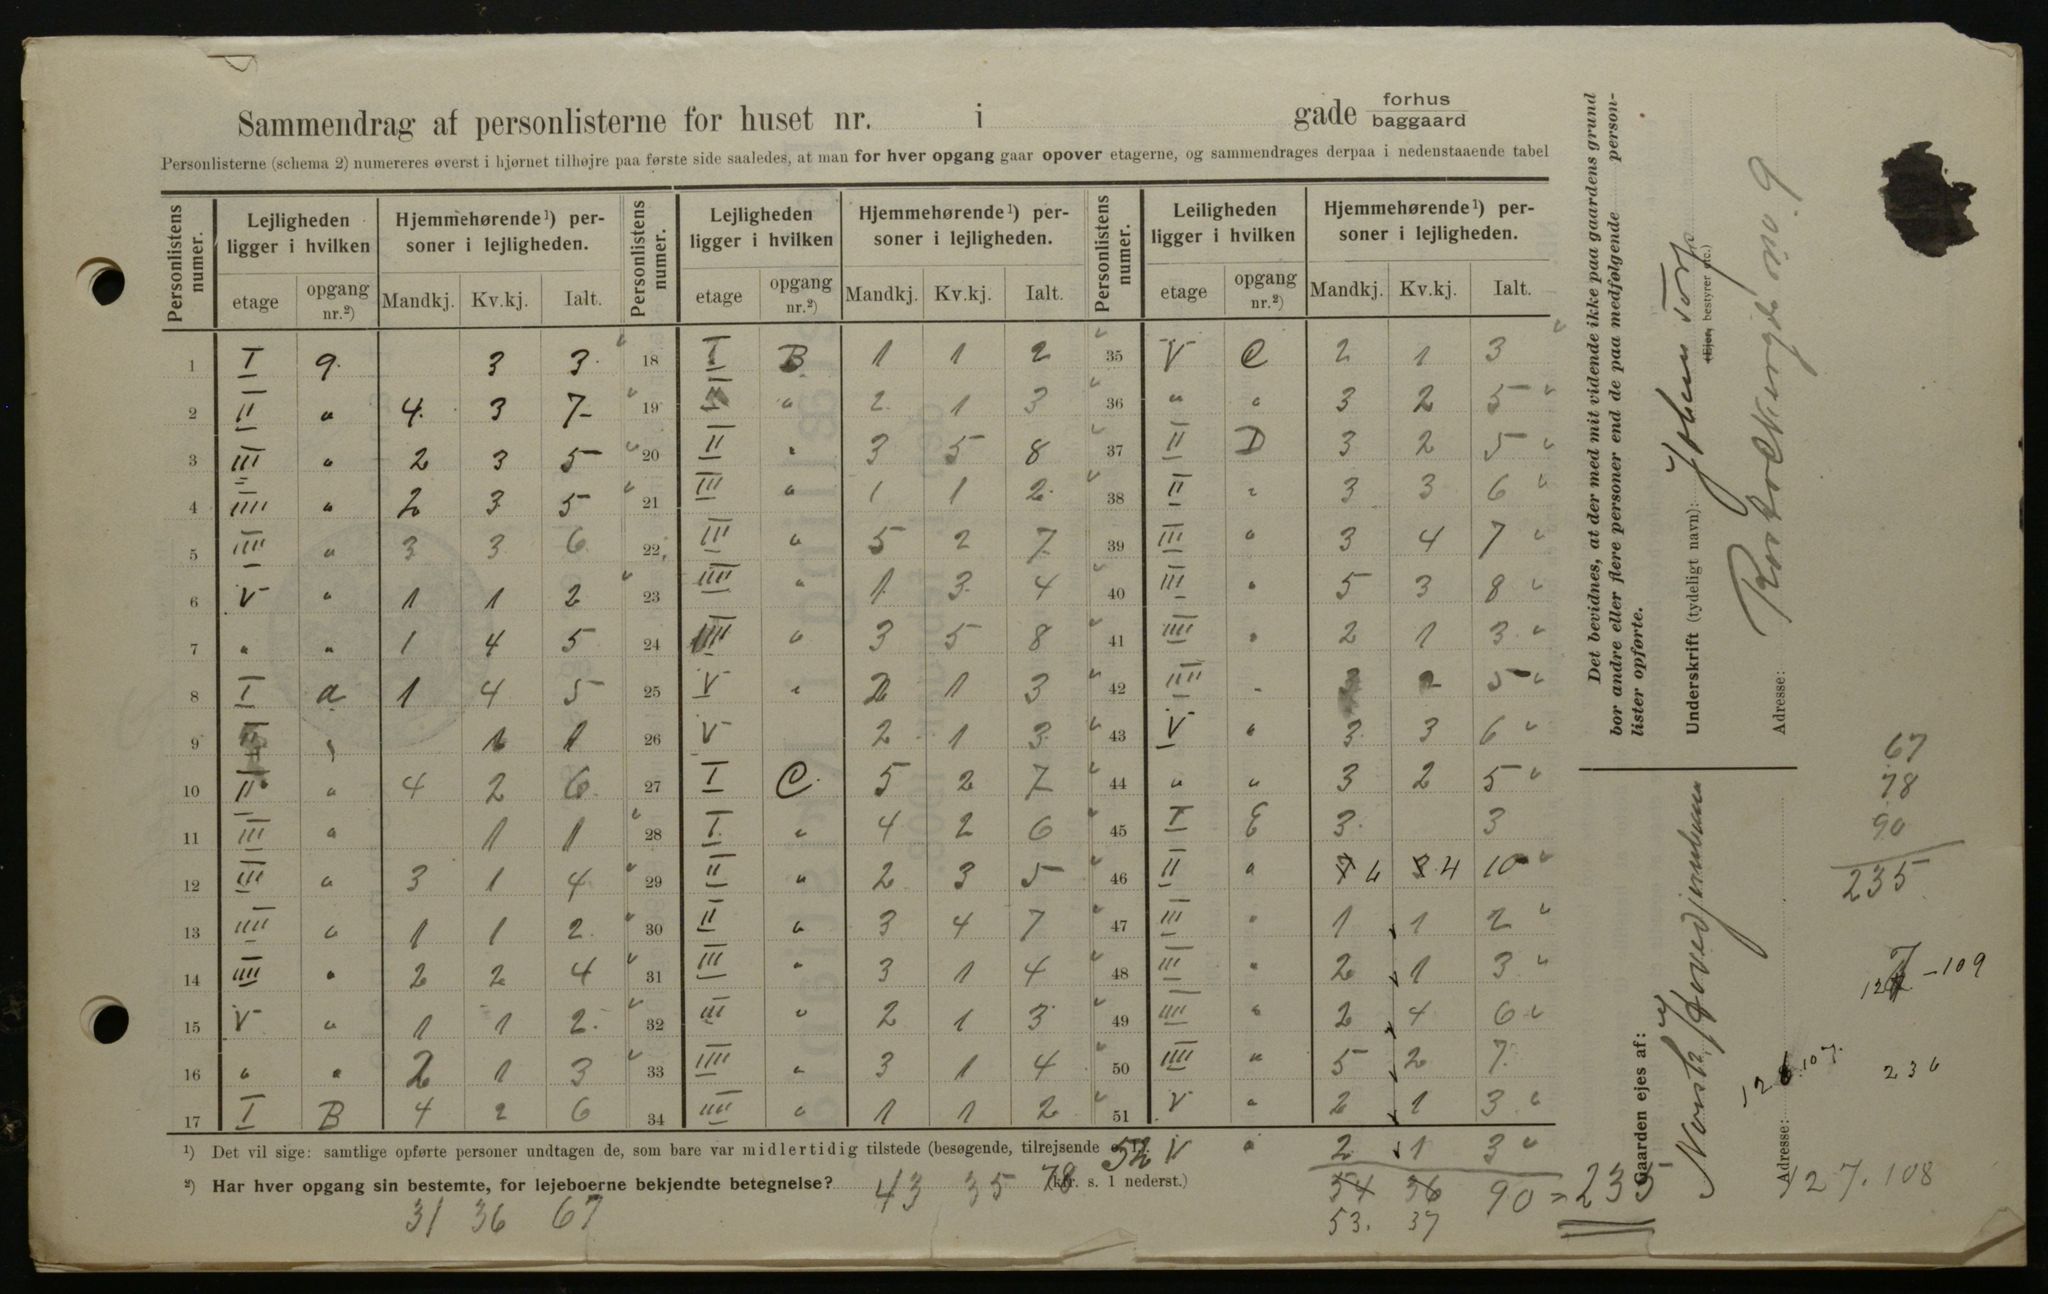 Sammendrag af personlisterne for huset nr. i gade forhus baggaard
Personlisterne (schema 2) numereres øverst i hjørnet tilhøjre paa første side saaledes, at man for hver opgang gaar opover etagerne, og sammendrages derpaa i nedenstaaende tabel
Personlistens numer. Lejligheden ligger i hvilken Hjemmehørende¹) personer i lejligheden. Personlistens numer. Lejligheden ligger i hvilken Hjemmehørende¹) personer i lejligheden. Personlistens numer. Leiligheden ligger i hvilken Hjemmehørende¹) personer i lejligheden.
etage opgang nr.²) Mandkj. Kv.kj. Ialt. etage opgang nr.²) Mandkj. Kv.kj. Ialt. etage opgang nr.²) Mandkj. Kv.kj. Ialt.
1 I 9. 3 3. 18 I B 1 1 2 35 V C 2 1 3
2 II " 4. 3 7- 19 " 2 1 3 36 " " 3 2 5
3 III " 2 3 5 20 II " 3 5 8 37 II D 3 2 5
4 IIII " 2 3 5 21 III " 1 1 2 38 II " 3 3 6
5 IIII " 3 3 6 22 III " 5 2 7 39 III " 3 4 7
6 V " 1 1 2 23 IIII " 1 3 4 40 III " 5 3 8
7 " " 1 4 5 24 IIII " 3 5 8 41 IIII " 2 1 3
8 I a 1 4 5 25 V " 2 1 3 42 IIII " 2 5
9 II " 1 1 26 V 2 1 3 43 V " 3 3 6
10 II " 4 2 6 27 I C 5 2 7 44 " " 3 2 5
11 III " 1 1 28 I " 4 2 6 45 I E 3 3
12 III " 3 1 4 29 II " 2 3 5 46 II " 6 4 10
13 IIII " 1 1 2 30 II " 3 4 7 47 III " 1 1 2
14 IIII " 2 2 4 31 III " 3 1 4 48 III " 2 1 3
15 V " 1 1 2 32 III " 2 1 3 49 IIII " 2 4 6
16 " " 2 1 3 33 IIII " 3 1 4 50 IIII " 5 2 7
17 I B 4 2 6 34 IIII " 1 1 2 51 V " 2 1 3
¹) Det vil sige: samtlige opførte personer undtagen de, som bare var midlertidig tilstede (besøgende, tilrejsende 52 V " 2 1 3
²) Har hver opgang sin bestemte, for lejeboerne bekjendte betegnelse? (kfr. s. 1 nederst.)
43 35 78 54 36 90 = 235
31 36 67 53. 37
Det bevidnes, at der med mit vidende ikke paa gaardens grund
bor andre eller flere personer end de paa medfølgende personlister opførte.
Underskrift (tydeligt navn): Johan
(Ejer, bestyrer etc.)
Adresse: no. 9
Gaarden ejes af:
Adresse:
67
78
90
235
109
236
128.107.
127.108